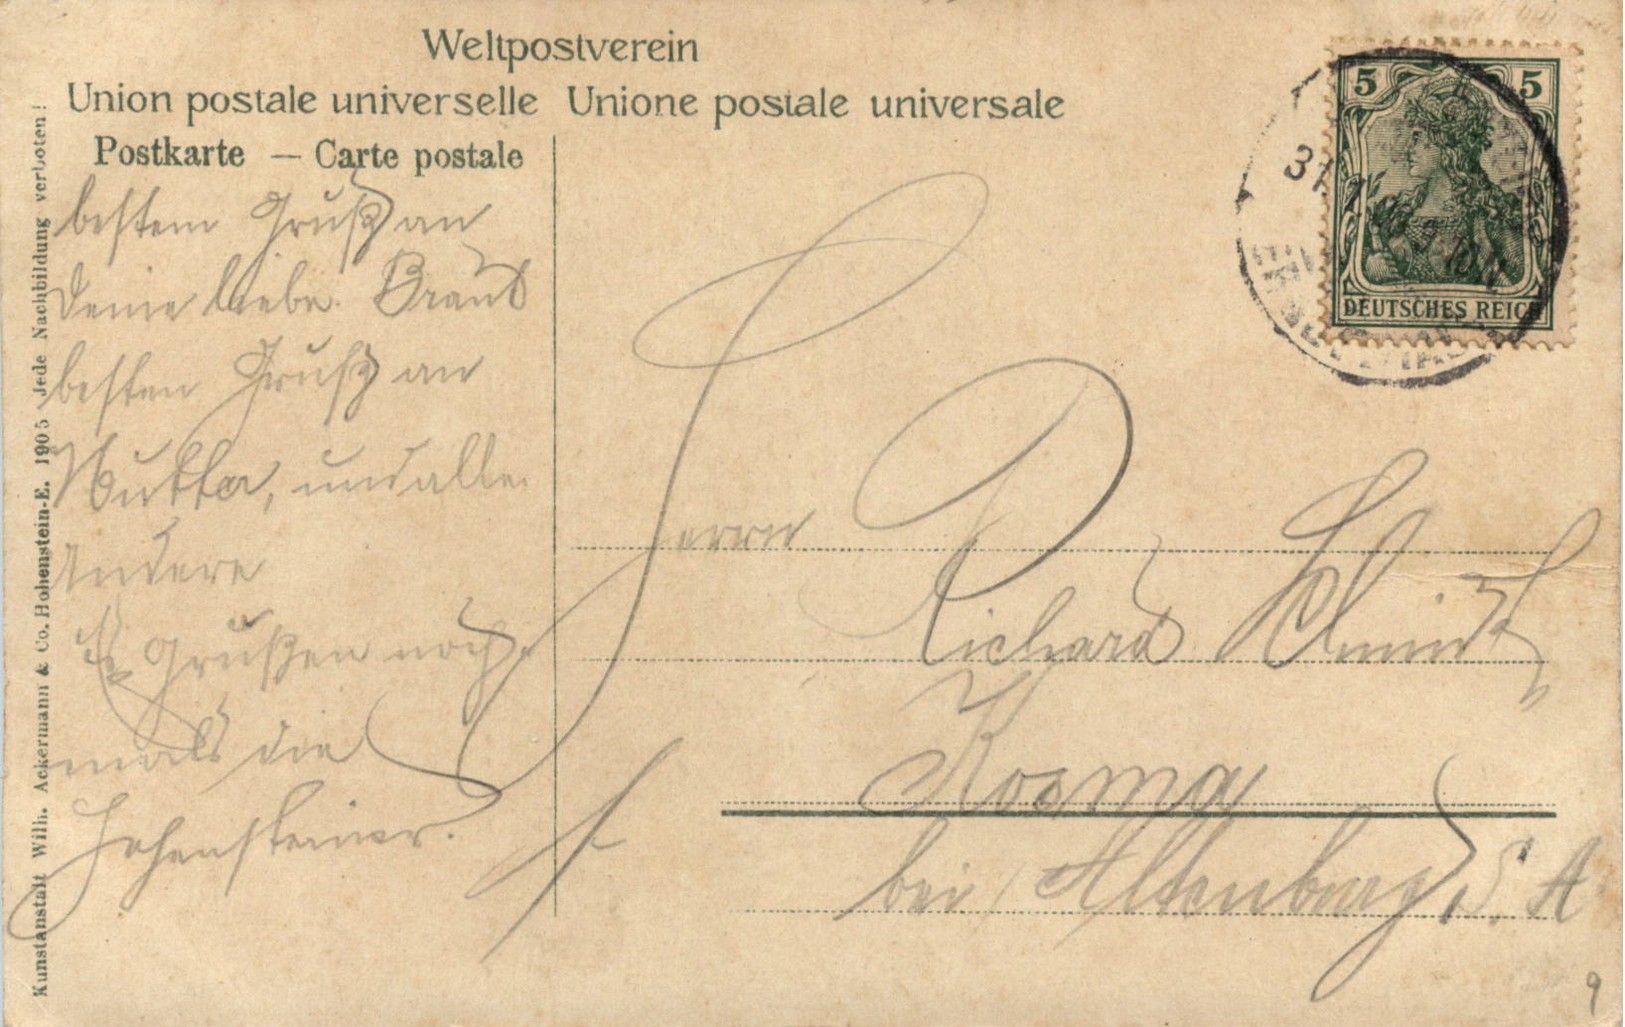 Weltpostverein
Union postale universelle Unione postale universale
Postkarte — Carte postale
bestem Gruß an
deine liebe Braut
besten Gruß an
Mutter, und alle
Andere
Es Grüßen noch
mals die
Hohensteiner.
Kunstanstalt Wilh. Ackermann & Co. Hohenstein-E. 1905 Jede Nachbildung verboten!
5 5
DEUTSCHES REICH
31
Herrn
Richard Schmidt
Kosma
bei Altenburg S. A
9